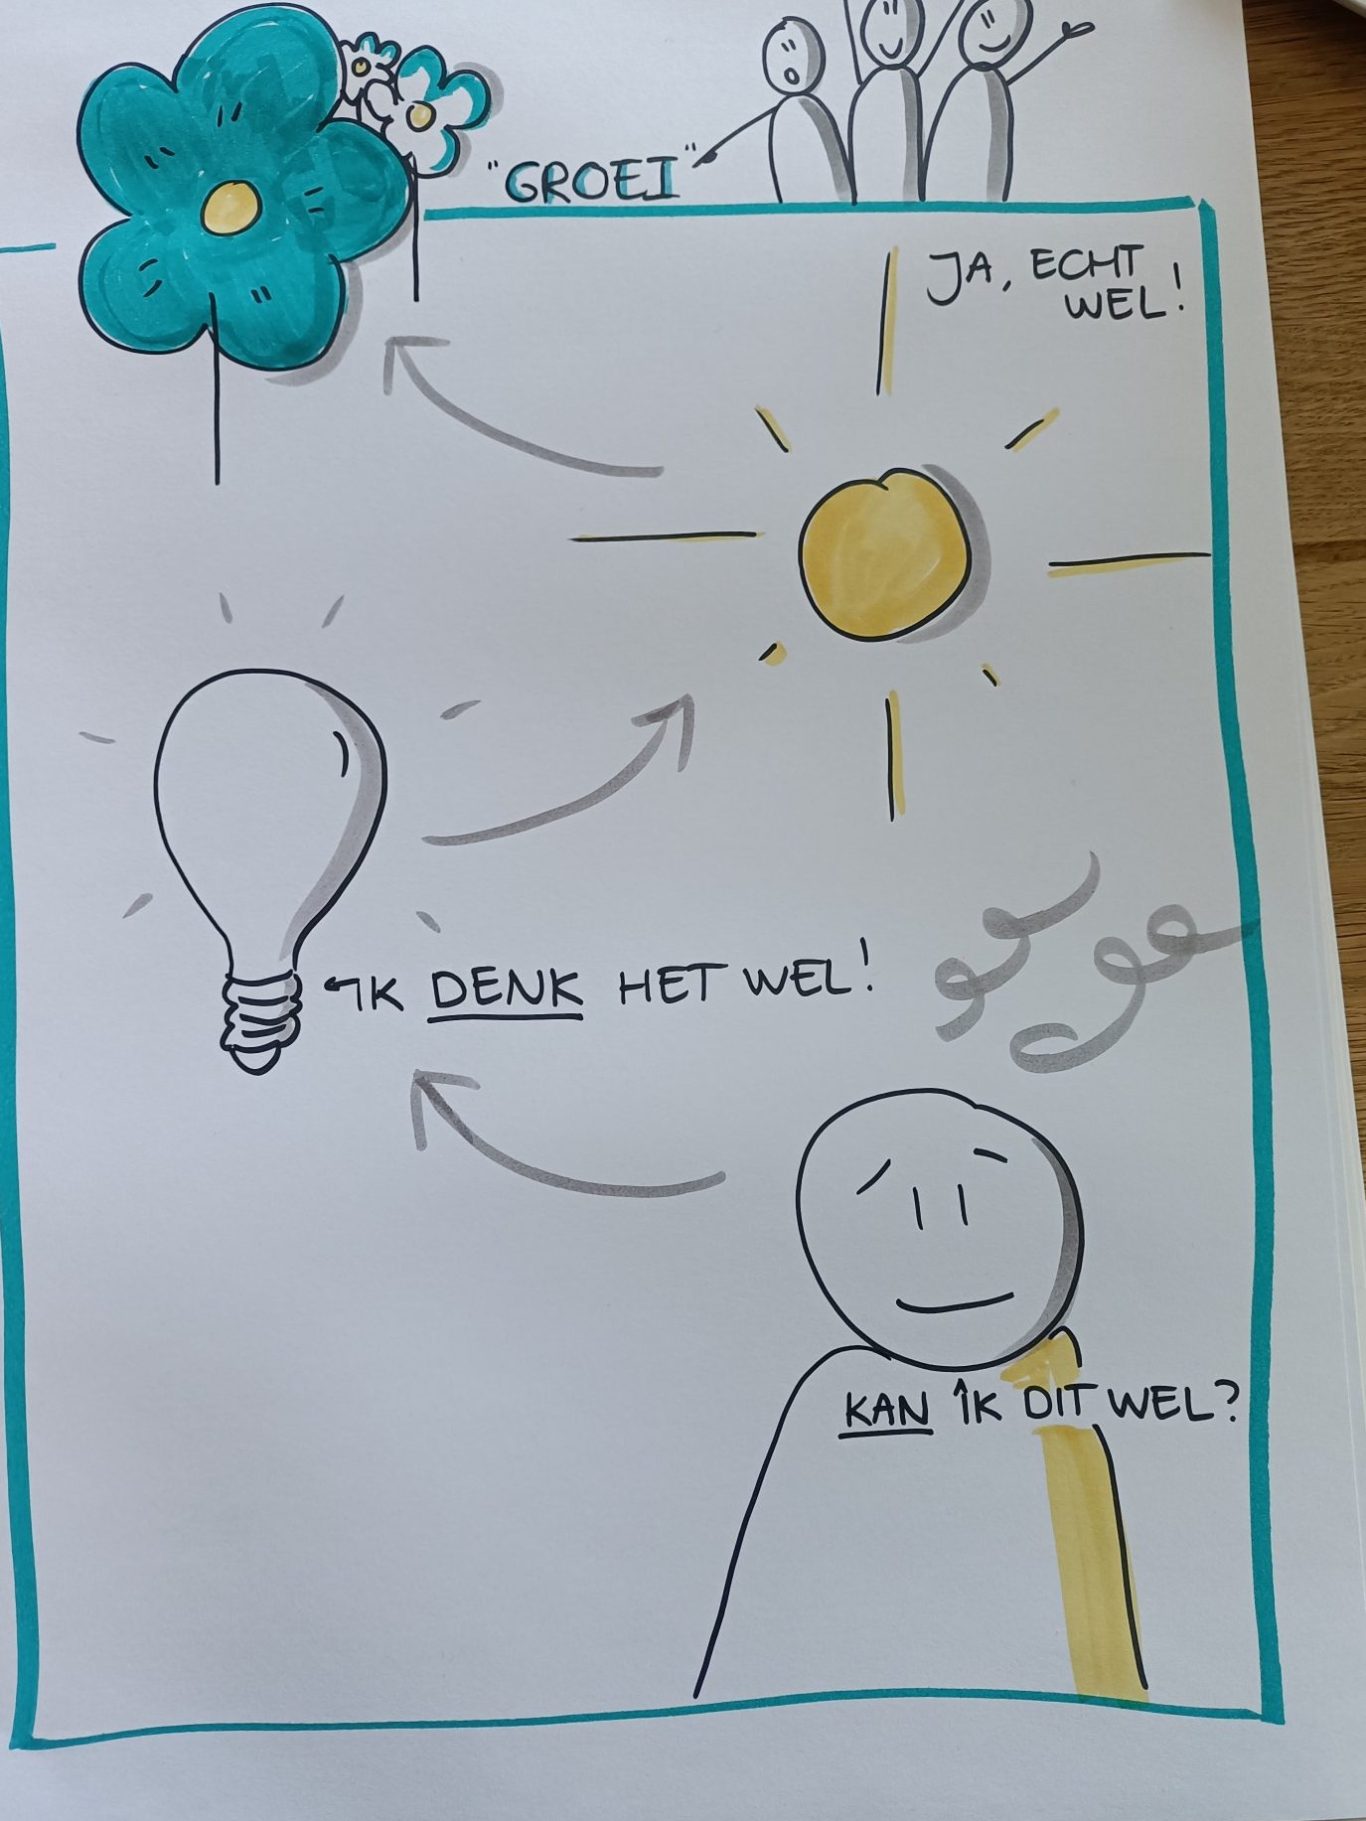 "GROEI"
JA, ECHT
WEL!
IK DENK HET WEL!
KAN IK DIT WEL?